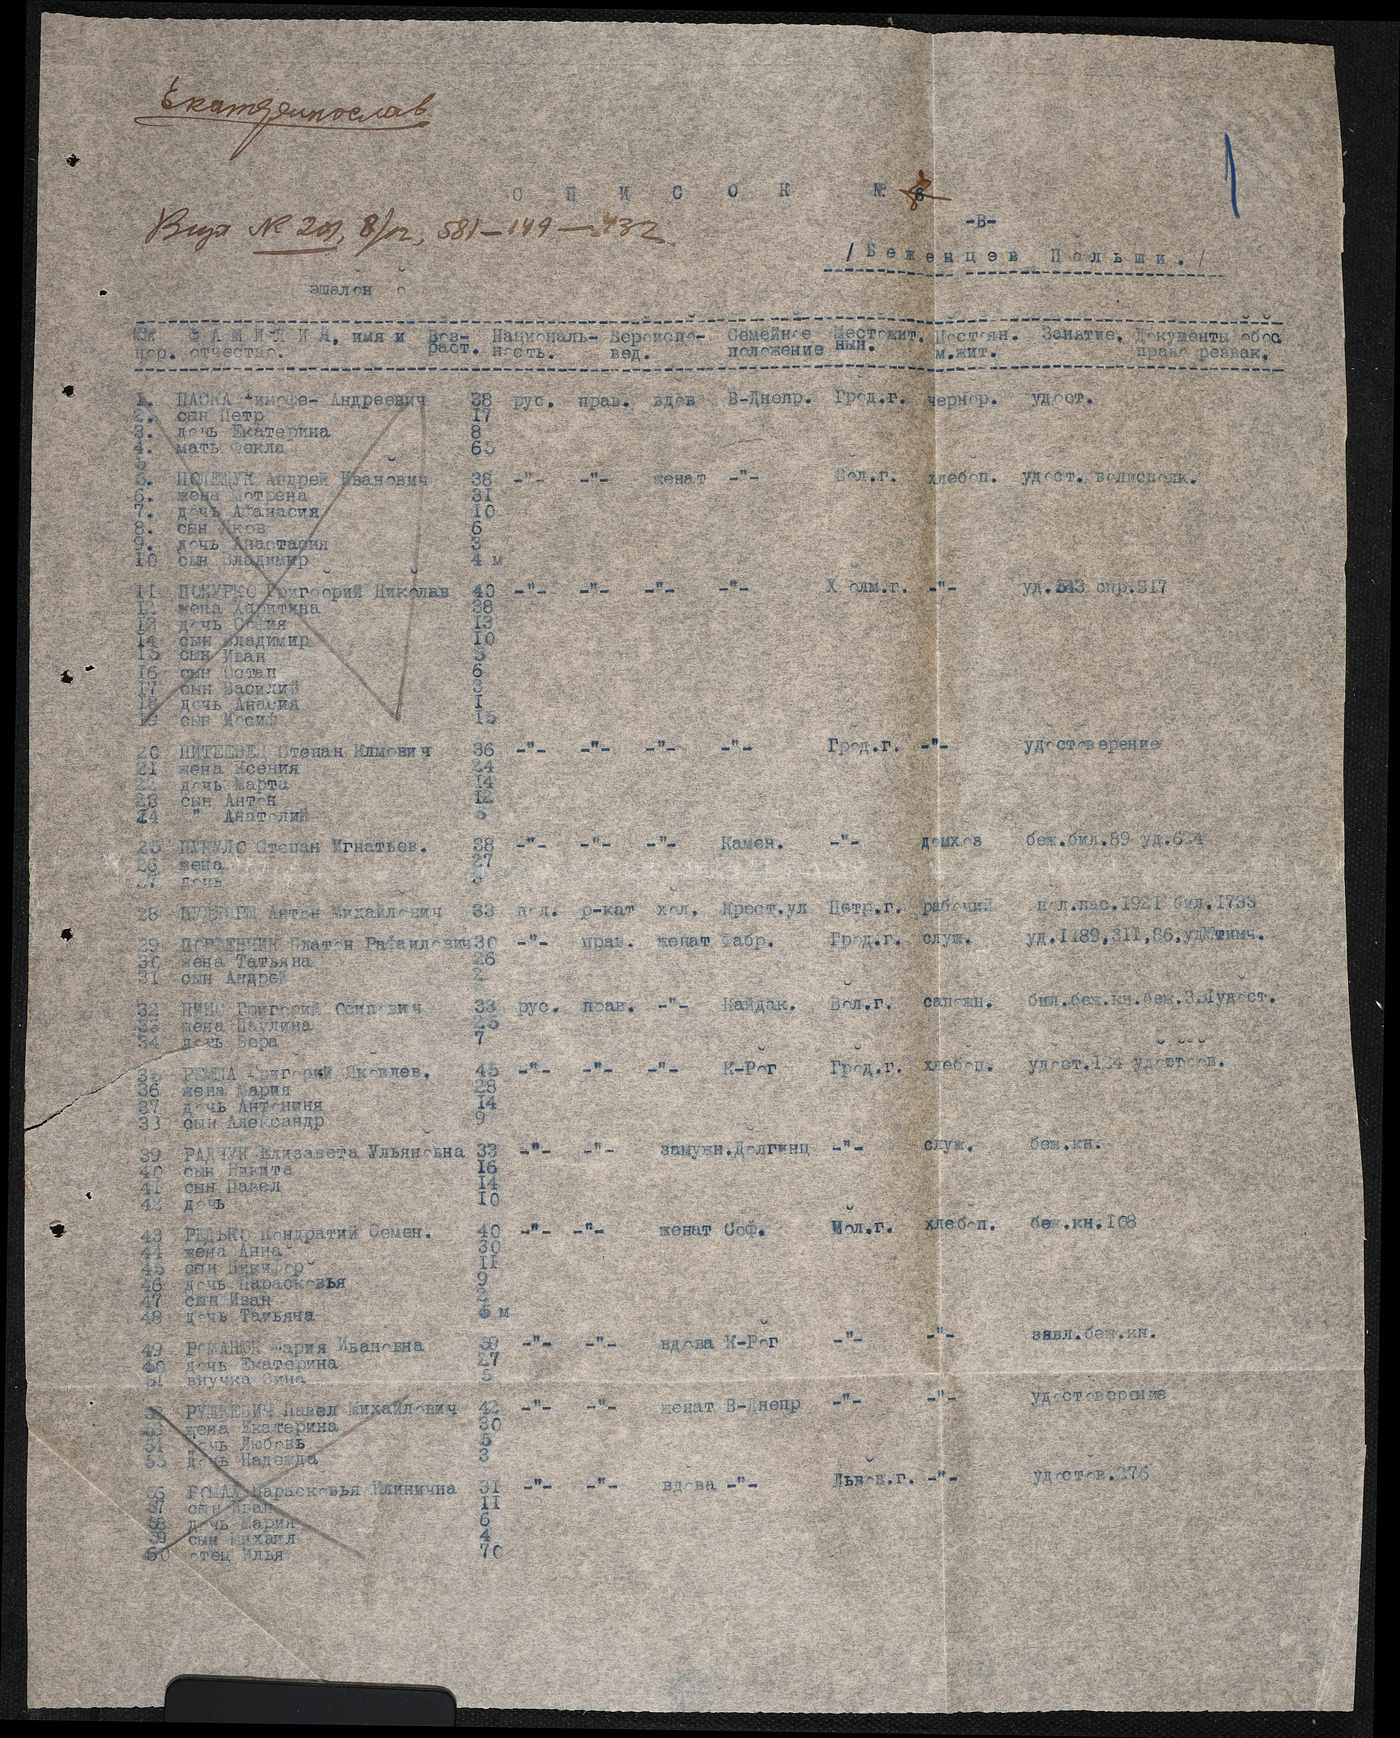 Екатеринослав
С П И С О К №
Вх № 201, 8/IV, 581-149-432
-В-
/Беженцев Польши./
эшалон
ФАМИЛИЯ, имя и Воз- Националь- Вероиспо- Семейное Местожит. Постоян. Занятие. Документы обос
пор. отчество. раст. ность. вед. положение нын. м.жит. право реэвак.
1. Андреевич 38 рус. прав. вдов В-Днепр. Грод.г. чернор. удост.
2. сын Петр 17
3. дочь Екатерина 8
4. мать Фекла 65
5. ПОЛЕЩУК Андрей Иванович 38 -"- -"- женат -"- Вол.г. хлебоп. удост. волисполк.
6. жена Мотрена 31
7. дочь Афанасия 10
8. сын Яков 6
9. дочь Анастасия 3
10 сын Владимир 4 м
11 Григорий Николав 40 -"- -"- -"- -"- Холм.г. -"- уд. спр.317
12 жена Харитина 38
13 дочь София 13
14 сын Владимир 10
15 сын Иван
16 сын Остап 6
17 сын Василий 3
18 дочь 1
19 сын 15
20 Степан 36 -"- -"- -"- -"- Грод.г. -"- удостоверение
21 жена Ксения 24
22 дочь Марта 14
23 сын Антон 12
24 " Анатолий
25 Степан Игнатьев. 38 -"- -"- -"- Камен. -"- домхоз беж.бил.89
26 жена 27
27 дочь
28 Антон Михайлович 33 пол. р-кат хол. Крест.ул Петр.г. рабочий пол.пас.1921 бил.1733
29 Платон Рафаилович 30 -"- прав. женат Фабр. Грод.г. служ. уд.1189,311,86.
30 жена Татьяна 26
31 сын Андрей
32 Григорий Осипович 33 рус. прав. -"- Кайдак. Вол.г. сапожн. бил.беж.кн.беж.
33 жена Паулина 25
34 дочь Вера 7
35 Григорий Яковлев. 45 -"- -"- -"- К-Рог Грод.г. хлебоп. удост.124
36 жена Мария 28
37 дочь Антонина 14
38 сын Александр 9
39 РАДЧУК Елизавета Ульяновна 33 -"- -"- замужн.Долгинц -"- служ. беж.кн.
40 сын Никита 16
41 сын Павел 14
42 дочь 10
43 РЕДЬКО Кондратий Семен. 40 -"- -"- женат Соф. Вол.г. хлебоп. беж.кн.108
44 жена Анна 30
45 сын Никифор 11
46 дочь Парасковья 9
47 сын Иван 2
48 дочь Татьяна 5 м
49 РОМАНЮК Мария Ивановна -"- -"- вдова К-Рог -"- -"- заявл.беж.кн.
50 дочь Екатерина 27
51 внучка Зина 5
52 РУШКЕВИЧ Павел Михайлович 42 -"- -"- женат В-Днепр -"- -"- удостоверение
53 жена Екатерина 30
54 дочь Любовь 5
55 дочь Надежда 3
56 Парасковья Илинична 31 -"- -"- вдова -"- Львов.г. -"- удостов.276
57 сын Иван 11
58 дочь Мария 6
59 сын Михаил 4
60 отец Илья 70